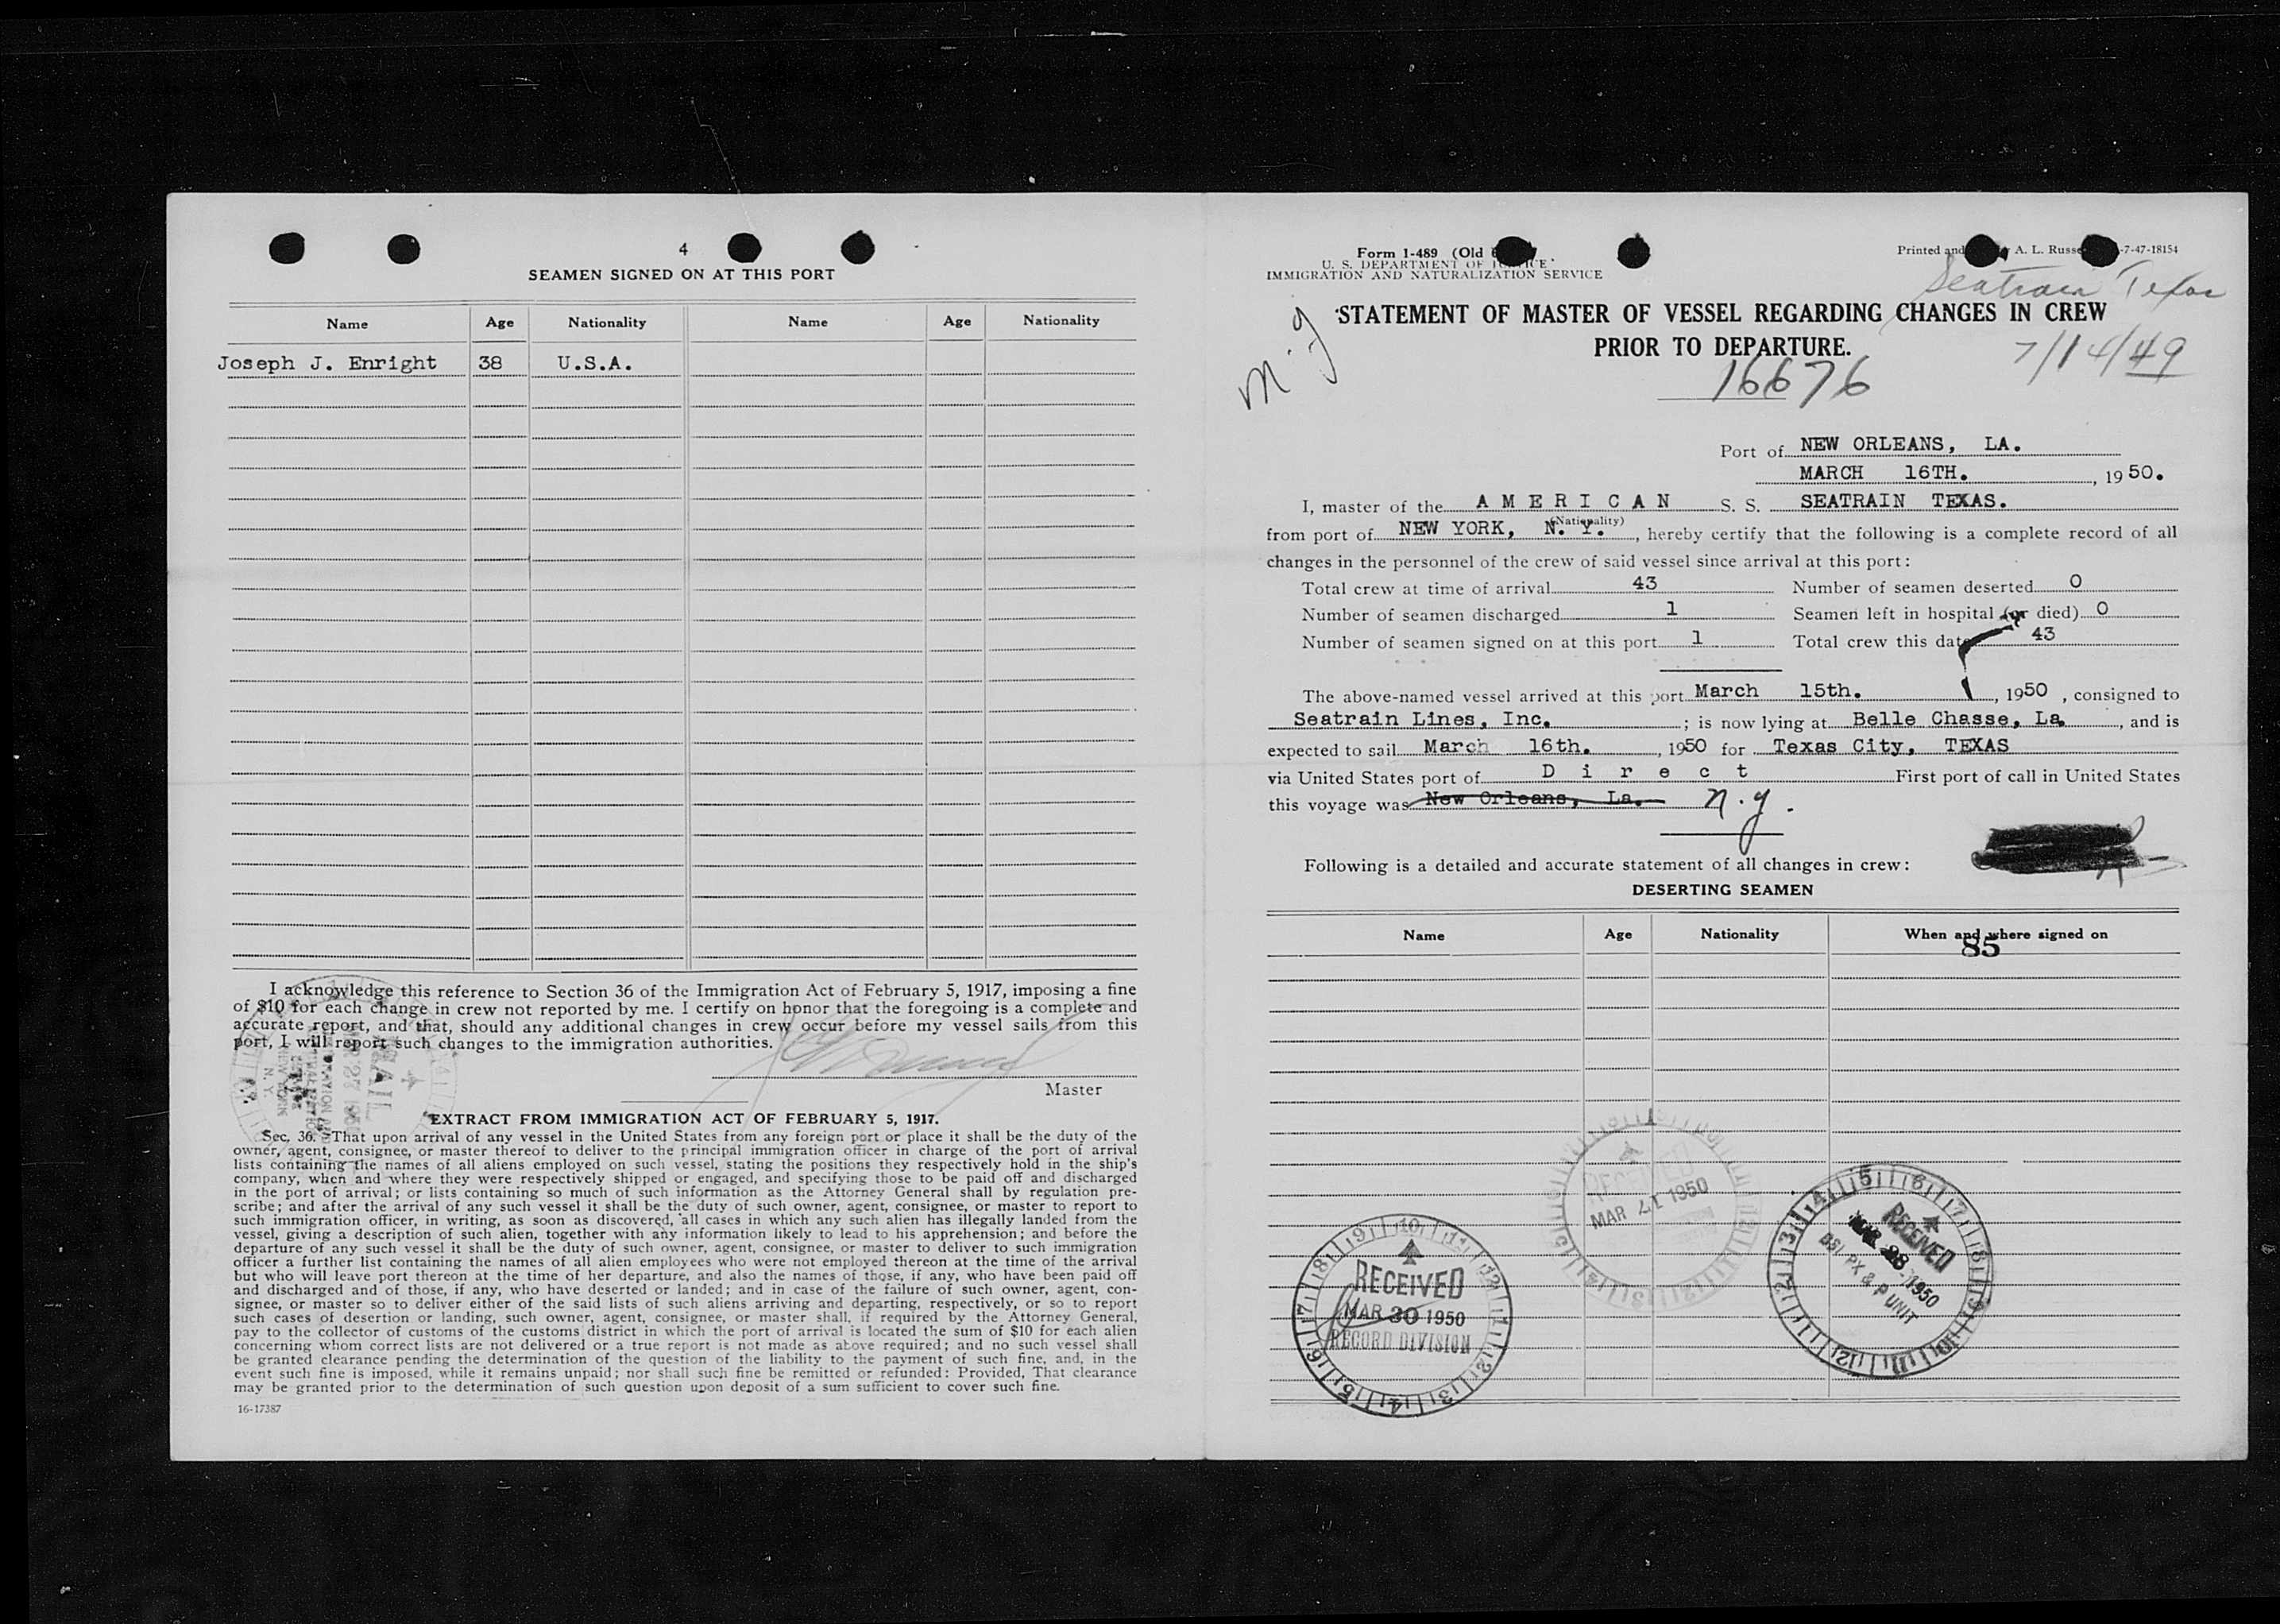 4
SEAMEN SIGNED ON AT THIS PORT
Name Age Nationality Name Age Nationality
Joseph J. Enright 38 U.S.A.
I acknowledge this reference to Section 36 of the Immigration Act of February 5, 1917, imposing a fine
of $10 for each change in crew not reported by me. I certify on honor that the foregoing is a complete and
accurate report, and that, should any additional changes in crew occur before my vessel sails from this
port, I will report such changes to the immigration authorities.
Master
EXTRACT FROM IMMIGRATION ACT OF FEBRUARY 5, 1917.
Sec. 36. That upon arrival of any vessel in the United States from any foreign port or place it shall be the duty of the
owner, agent, consignee, or master thereof to deliver to the principal immigration officer in charge of the port of arrival
lists containing the names of all aliens employed on such vessel, stating the positions they respectively hold in the ship's
company, when and where they were respectively shipped or engaged, and specifying those to be paid off and discharged
in the port of arrival; or lists containing so much of such information as the Attorney General shall by regulation pre-
scribe; and after the arrival of any such vessel it shall be the duty of such owner, agent, consignee, or master to report to
such immigration officer, in writing, as soon as discovered, all cases in which any such alien has illegally landed from the
vessel, giving a description of such alien, together with any information likely to lead to his apprehension; and before the
departure of any such vessel it shall be the duty of such owner, agent, consignee, or master to deliver to such immigration
officer a further list containing the names of all alien employees who were not employed thereon at the time of the arrival
but who will leave port thereon at the time of her departure, and also the names of those, if any, who have been paid off
and discharged and of those, if any, who have deserted or landed; and in case of the failure of such owner, agent, con-
signee, or master so to deliver either of the said lists of such aliens arriving and departing, respectively, or so to report
such cases of desertion or landing, such owner, agent, consignee, or master shall, if required by the Attorney General,
pay to the collector of customs of the customs district in which the port of arrival is located the sum of $10 for each alien
concerning whom correct lists are not delivered or a true report is not made as above required; and no such vessel shall
be granted clearance pending the determination of the question of the liability to the payment of such fine, and, in the
event such fine is imposed, while it remains unpaid; nor shall such fine be remitted or refunded: Provided, That clearance
may be granted prior to the determination of such question upon deposit of a sum sufficient to cover such fine.
16-17387
Form 1-489 (Old
U. S. DEPARTMENT OF JUSTICE
IMMIGRATION AND NATURALIZATION SERVICE
Printed and A. L. Russe -7-47-18154
Seatrain Texas
STATEMENT OF MASTER OF VESSEL REGARDING CHANGES IN CREW
PRIOR TO DEPARTURE.
7/14/49
16676
Port of NEW ORLEANS, LA.
MARCH 16TH. , 1950.
I, master of the AMERICAN S. S. SEATRAIN TEXAS.
(Nationality)
from port of NEW YORK, N. Y. , hereby certify that the following is a complete record of all
changes in the personnel of the crew of said vessel since arrival at this port:
Total crew at time of arrival 43 Number of seamen deserted 0
Number of seamen discharged 1 Seamen left in hospital (or died) 0
Number of seamen signed on at this port 1 Total crew this date 43
The above-named vessel arrived at this port March 15th. , 1950 , consigned to
Seatrain Lines, Inc. ; is now lying at Belle Chasse, La. , and is
expected to sail March 16th. , 1950 for Texas City, TEXAS
via United States port of Direct First port of call in United States
this voyage was New Orleans, La. N.Y.
Following is a detailed and accurate statement of all changes in crew:
DESERTING SEAMEN
Name Age Nationality When and where signed on
85
RECEIVED
MAR 30 1950
RECORD DIVISION
RECEIVED
MAR 21 1950
RECEIVED
MAR 28 1950